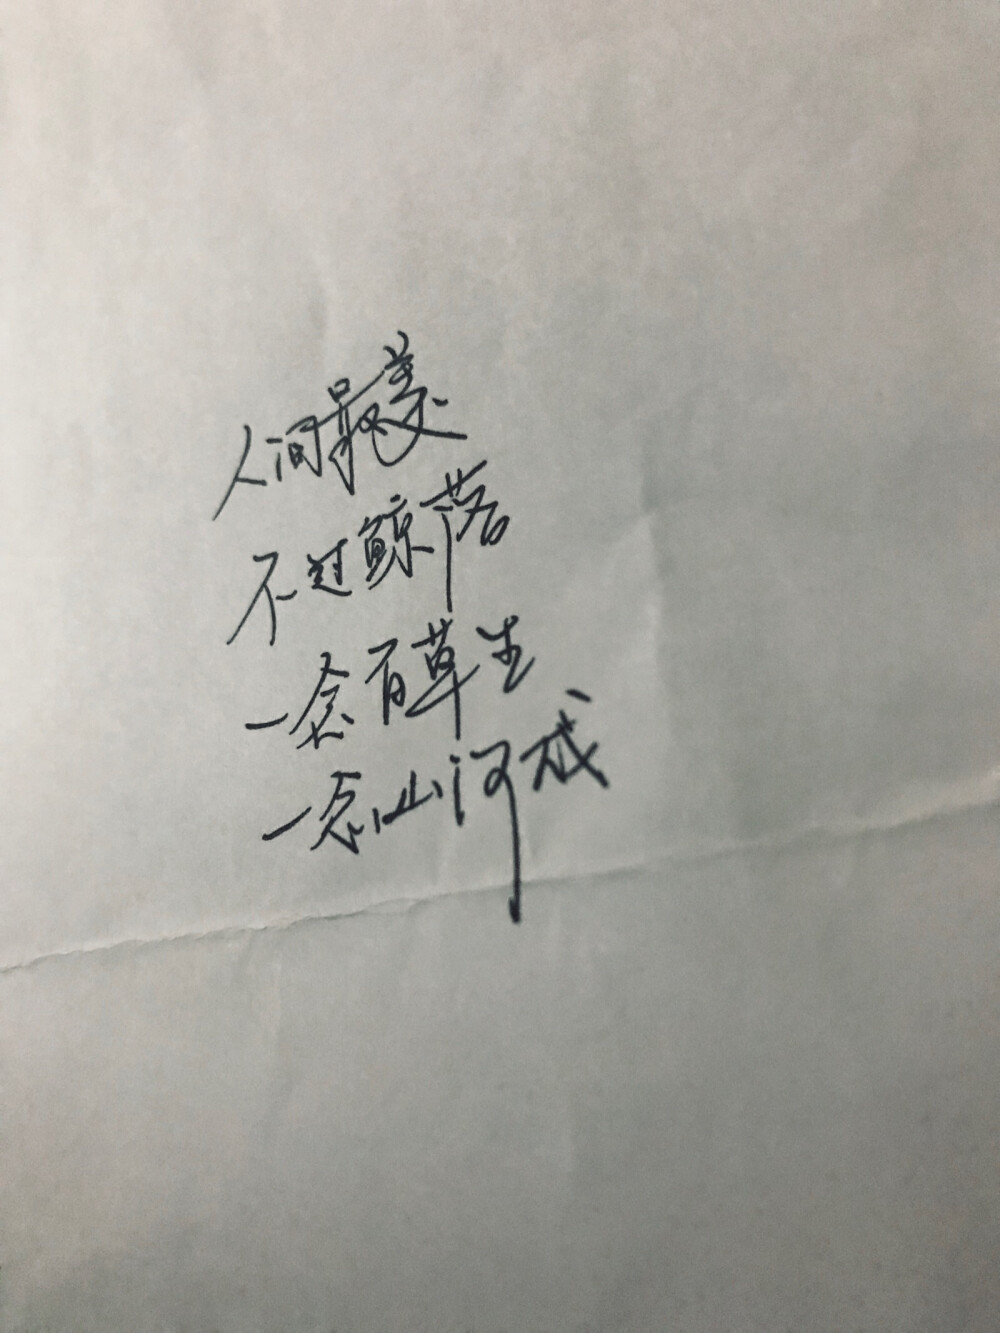 人间最美
不过鲸落
一念百草生
一念山河成